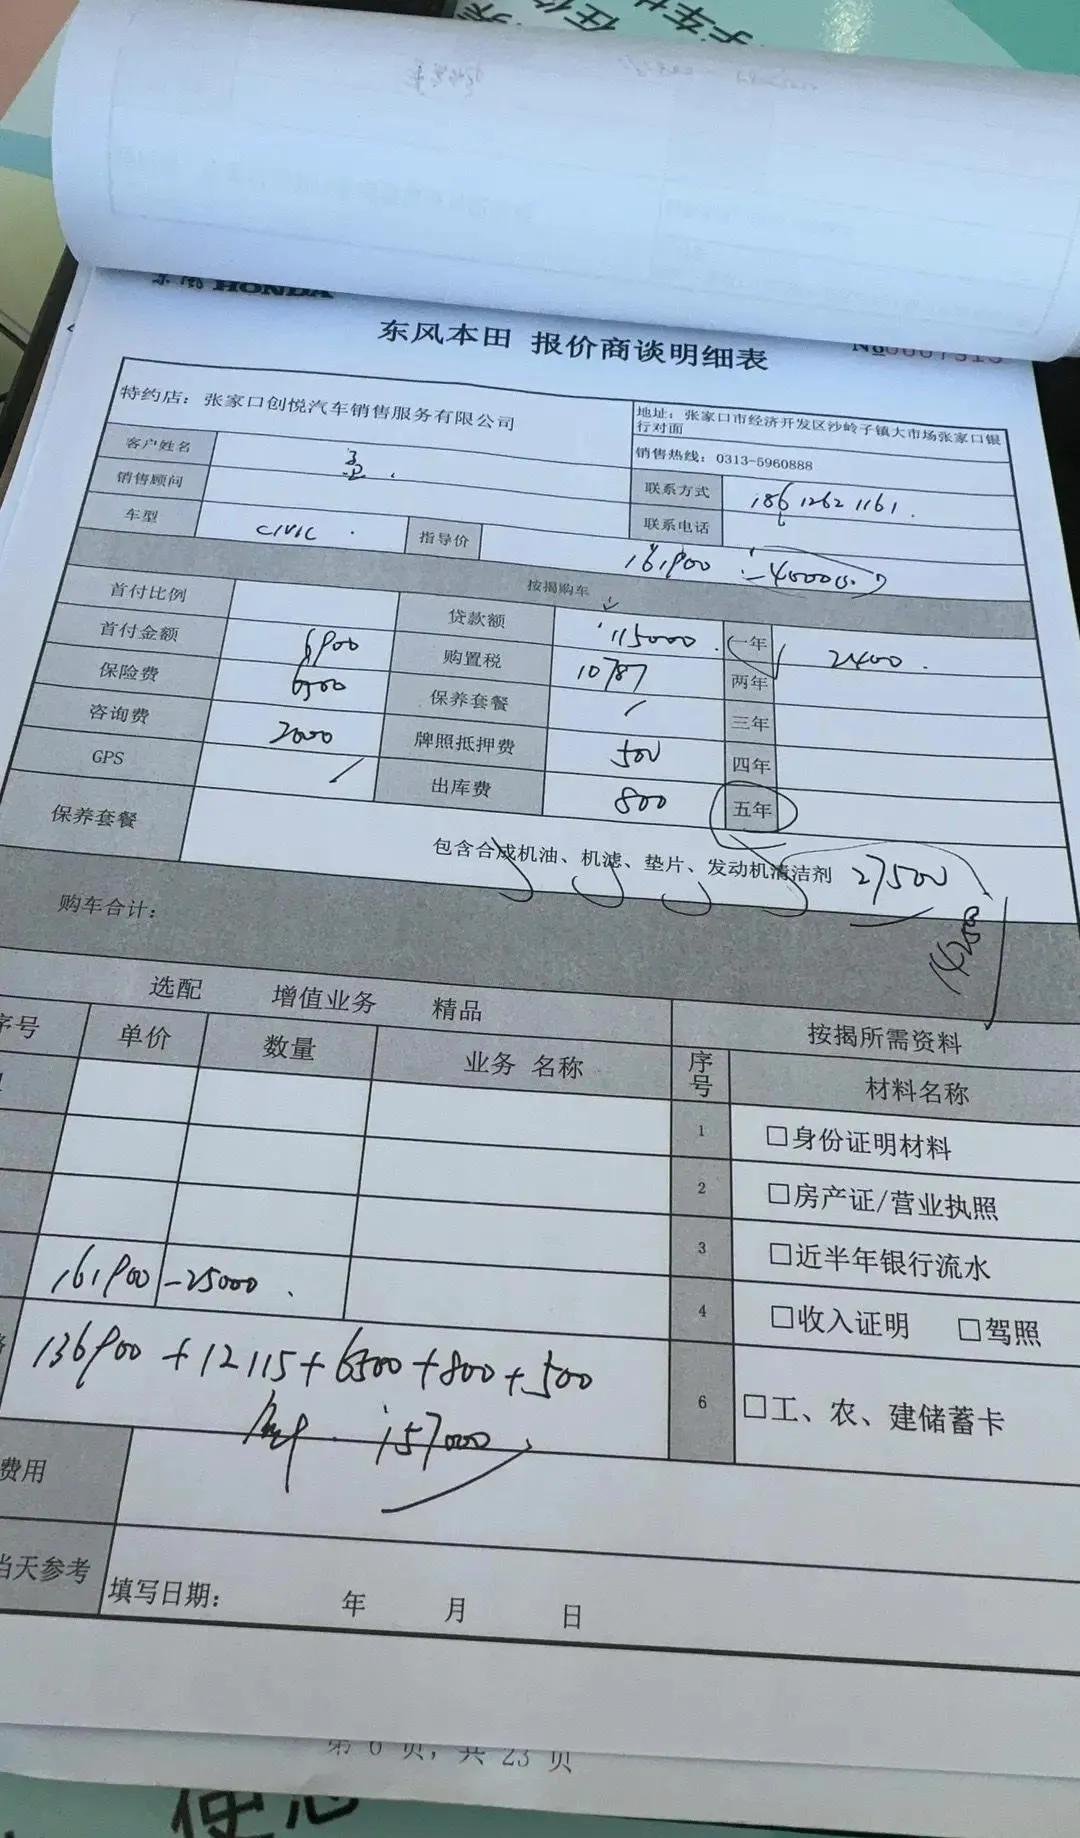 HONDA
东风本田 报价商谈明细表
特约店：张家口创悦汽车销售服务有限公司
地址：张家口市经济开发区沙岭子镇大市场张家口银行对面
销售热线：0313-5960888
客户姓名
销售顾问
联系方式 18612621161.
联系电话
车型 CIVIC 指导价 161900 -40000
按揭购车
首付比例 贷款额 115000. 一年 2400.
首付金额 6900 购置税 10787 两年
保险费 6500 保养套餐 / 三年
咨询费 2000 牌照抵押费 500 四年
GPS / 出库费 800 五年
保养套餐 包含合成机油、机滤、垫片、发动机清洁剂 27500
购车合计：
选配 增值业务 精品 按揭所需资料
序号 单价 数量 业务 名称 序号 材料名称
1 □身份证明材料
2 □房产证/营业执照
3 □近半年银行流水
161900 -25000. 4 □收入证明 □驾照
136900+12115+6500+800+500
157000
6 □工、农、建储蓄卡
费用
当天参考 填写日期： 年 月 日
第 6 页，共 23 页